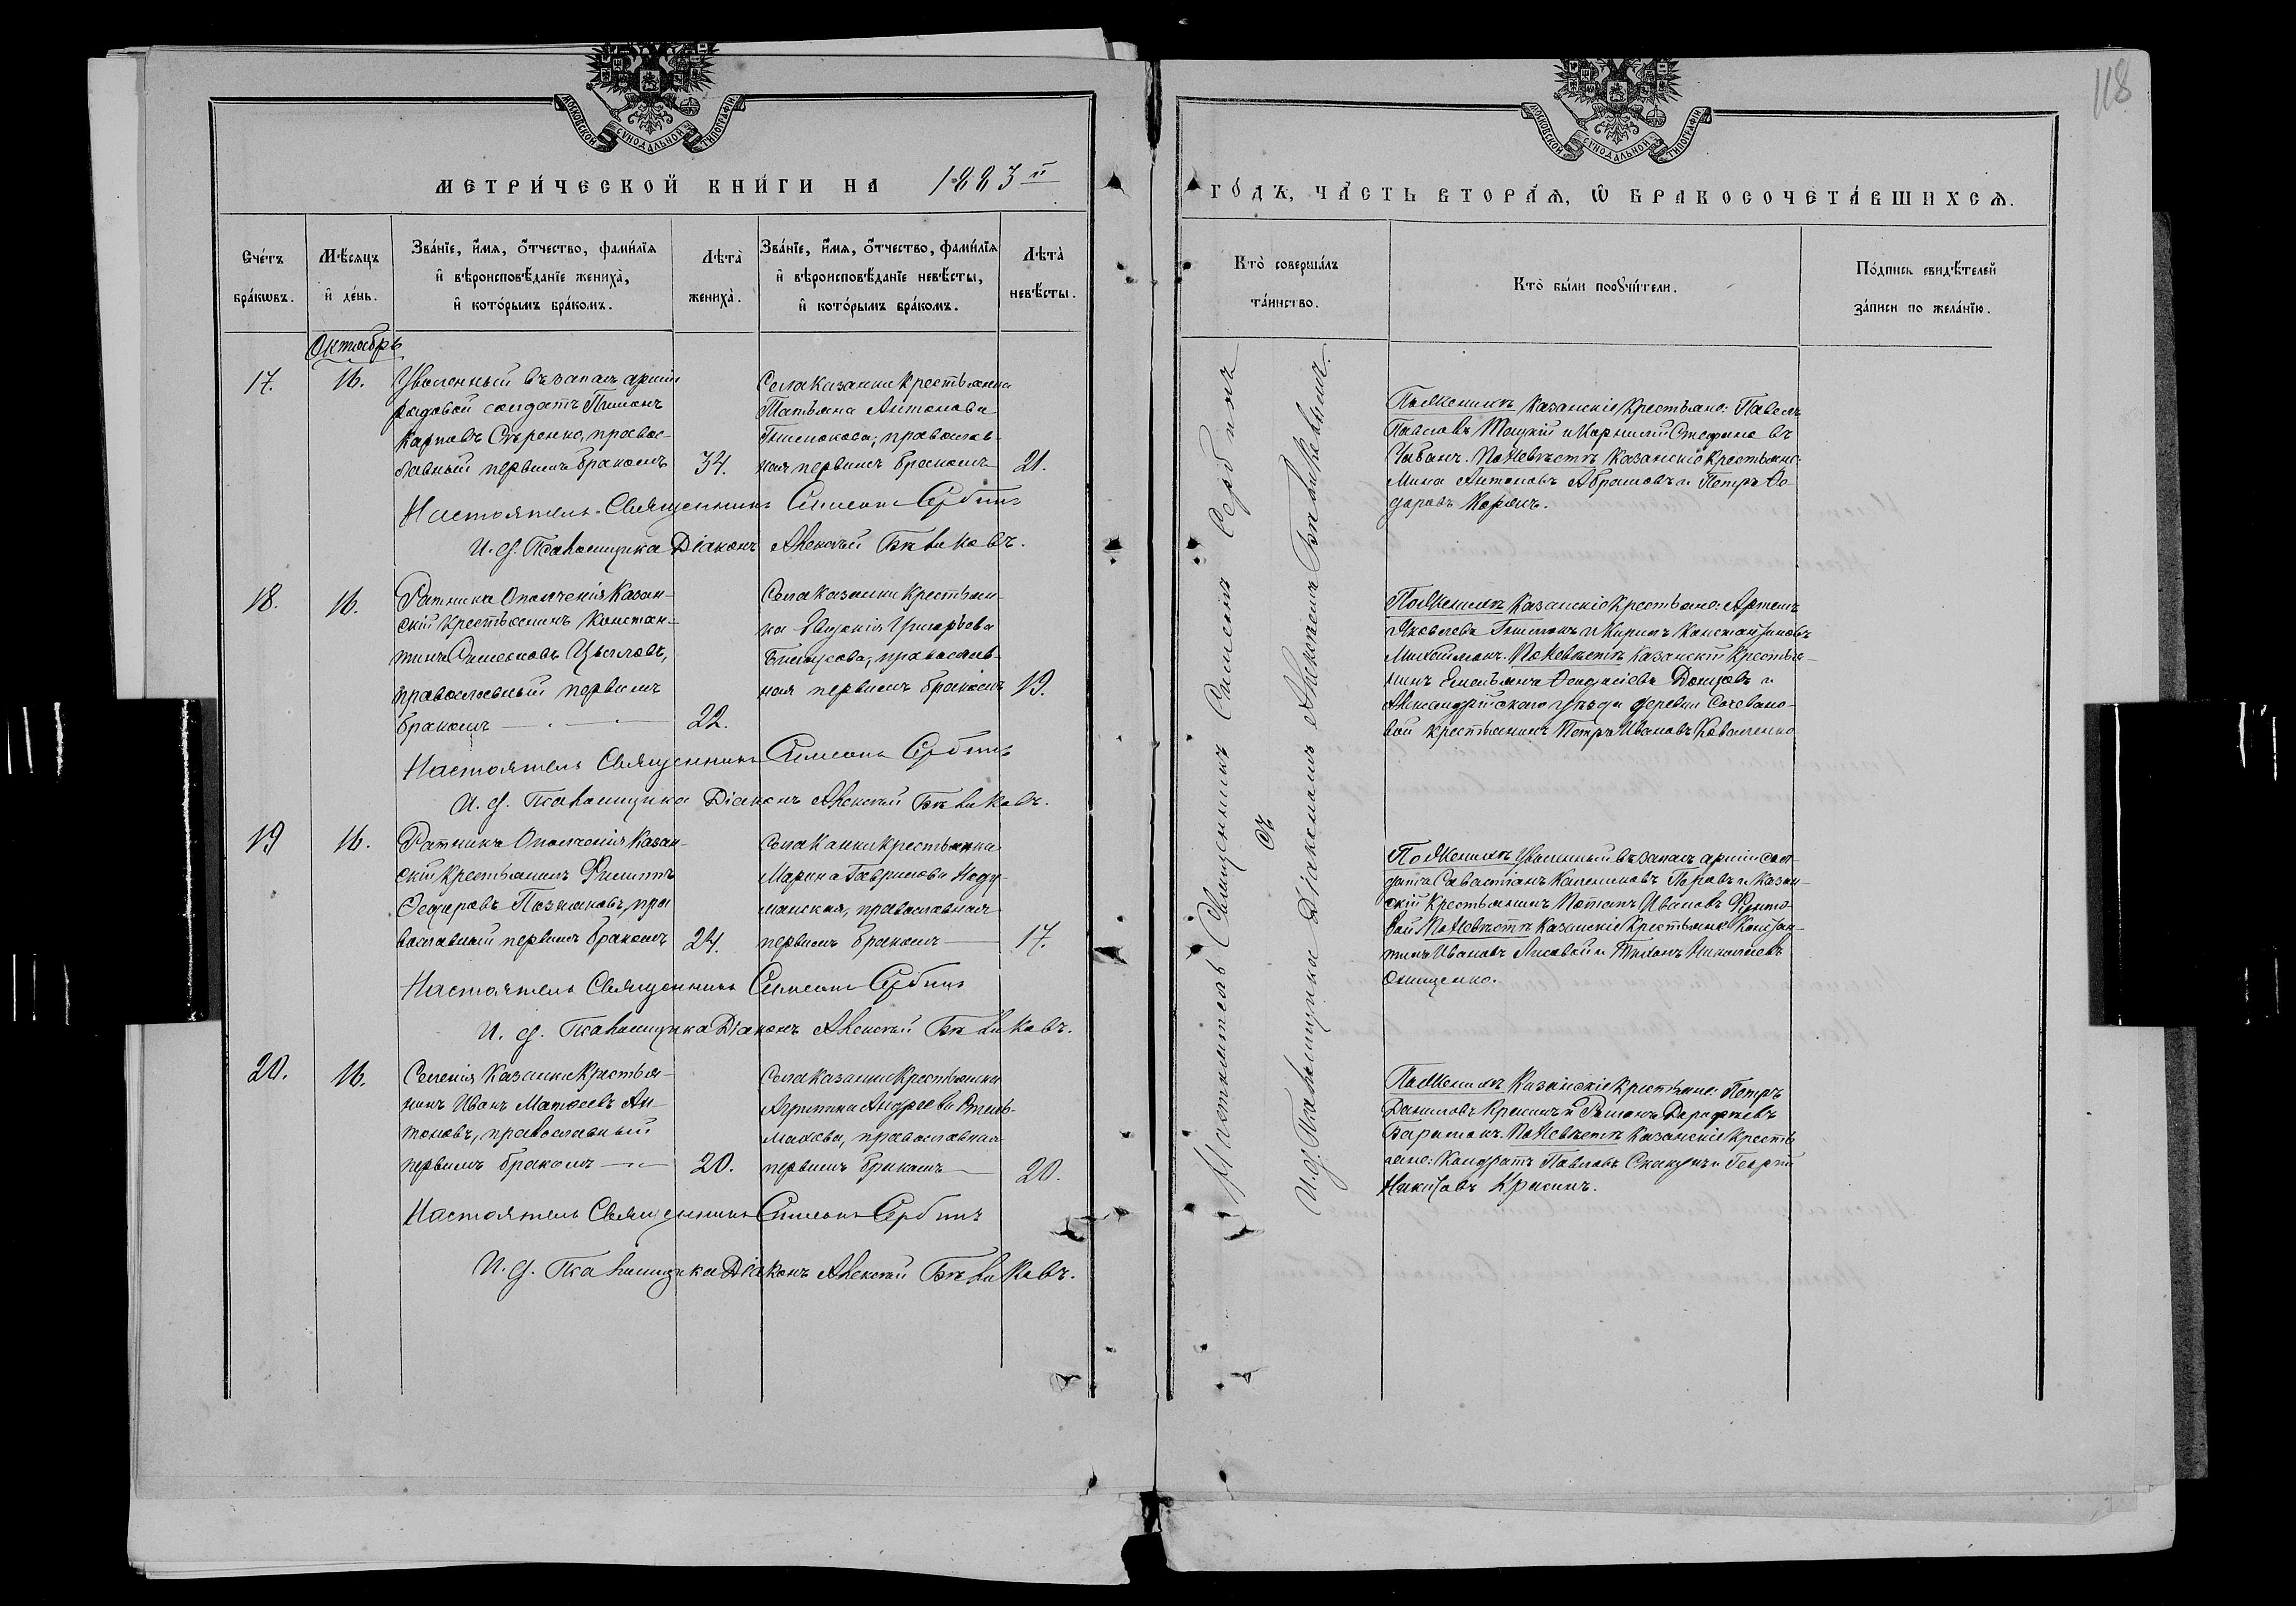 118
МОСКОВСКОЙ СѴНОДАЛЬНОЙ ТИПОГРАФІИ
МЕТРИ́ЧЕСКОЙ КНИ́ГИ НА 1883й
Сче́тъ бра́кѡвъ.
Мѣ́сяцъ и де́нь.
Зва́нїе, и́мѧ, ѻ́тчество, фами́лїѧ
и вѣроисповѣ́данїе жениха̀,
и кото́рымъ бра́комъ.
Лѣта̀ жениха̀.
Зва́нїе, и́мѧ, ѻ́тчество, фами́лїѧ
и вѣроисповѣ́данїе невѣ́сты,
и кото́рымъ бра́комъ.
Лѣта̀ невѣ́сты.
Октябрь
17.
16.
Уволенный въ запасъ арміи
рядовой солдатъ Пименъ
Карповъ Сѣренко, правос-
лавный первымъ бракомъ
34.
Села Казанки крестьянка
Татьяна Антонова
православ-
ная первымъ бракомъ
21.
Настоятель Священникъ Симеонъ Сербинъ
И. д. Псаломщика Діаконъ Алексѣй Бѣликовъ.
18.
16.
Ратникъ Ополченія Казан-
скій крестьянинъ Констан-
тинъ Симеоновъ
православный первымъ
бракомъ
22.
Села Казанки крестьян-
ка Евдокія Григорьева
православ-
ная первымъ бракомъ
19.
Настоятель Священникъ Симеонъ Сербинъ
И. д. Псаломщика Діаконъ Алексѣй Бѣликовъ.
19
16.
Ратникъ Ополченія Казан-
скій крестьянинъ Филиппъ
Ѳеодоровъ Позняковъ, пра
вославный первымъ бракомъ
24.
Села Канки крестьянка
Марина Гаврилова
православная
первымъ бракомъ
17.
Настоятель Священникъ Симеонъ Сербинъ
И. д. Псаломщика Діаконъ Алексѣй Бѣликовъ.
20.
16.
Селенія Казанки крестья-
нинъ Иванъ Матѳеевъ Ан-
тоновъ, православный
первымъ бракомъ
20.
Села Казанки крестьянка
Агрипина Андреева
православная
первымъ бракомъ
20.
Настоятель Священникъ Симеонъ Сербинъ
И. д. Псаломщика Діаконъ Алексѣй Бѣликовъ.
МОСКОВСКОЙ СѴНОДАЛЬНОЙ ТИПОГРАФІИ
ГО́ДЪ, ЧА́СТЬ ВТОРА́Ѧ, Ѡ БРАКОСОЧЕТА́ВШИХСѦ.
Кто̀ соверша́лъ та́инство.
Кто̀ бы́ли порꙋчи́тели.
По́дпись свидѣ́телей
за́писи по жела́нїю.
Настоятель Священникъ Симеонъ Сербинъ
съ
И. д. Псаломщика Діакономъ Алексѣемъ Бѣликовымъ.
По Женихѣ Казанскіе крестьяне: Павелъ
Павловъ и Корнилій Стефановъ
Чабанъ. По Невѣстѣ Казанскіе крестьяне:
Мина Антоновъ Абрамовъ и Петръ Ѳе-
доровъ
По Женихѣ Казанскіе крестьяне: Артемъ
Яковлевъ и Кирилъ Константиновъ
По Невѣстѣ Казанскій крестья-
нинъ Емельянъ Донцовъ и
Александрійскаго уѣзда деревни
вой крестьянинъ Петръ Ивановъ Коваленко
По Женихѣ Уволенный въ запасъ арміи сол-
датъ Савастіанъ и Казан-
скій крестьянинъ Потапъ Ивановъ
По Невѣстѣ Казанскіе крестьяне Констан-
тинъ Ивановъ Лисовой и Николаевъ
Онищенко.
По Женихѣ Казанскіе крестьяне: Петръ
Даниловъ и Дороѳеевъ
По Невѣстѣ Казанскіе кресть
яне: Кондратъ Павловъ Скакунъ и Георгій